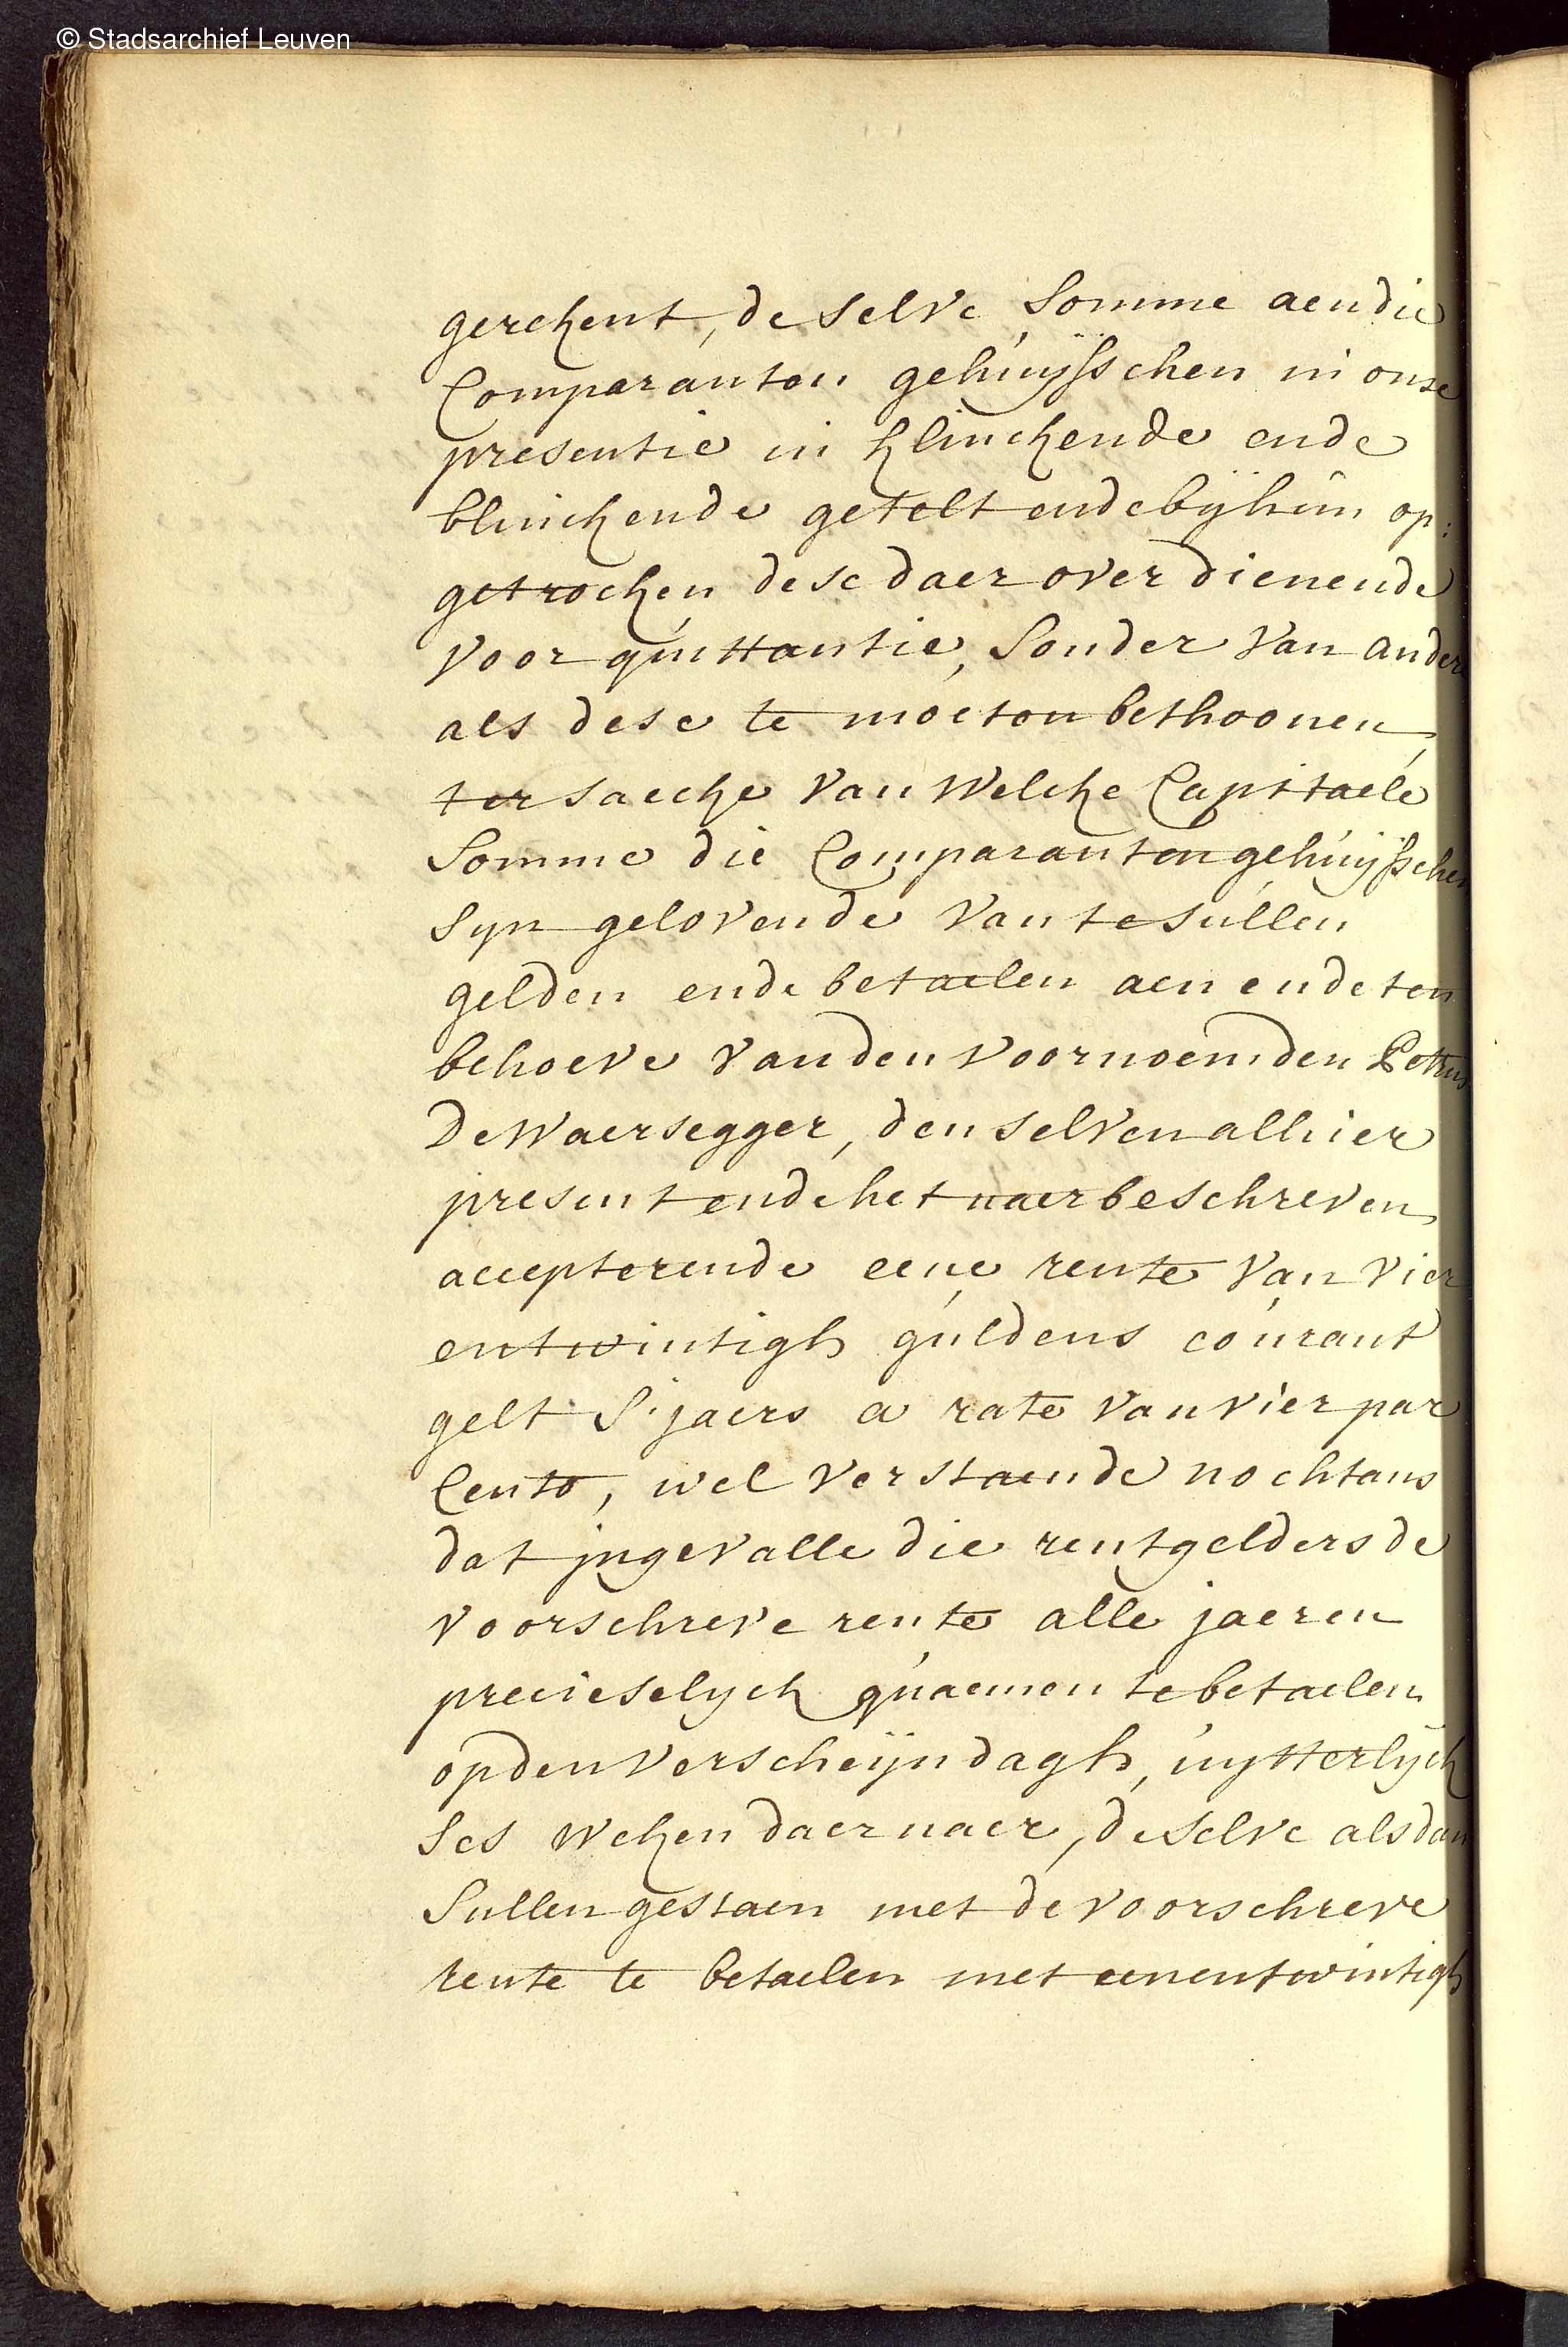 © Stadsarchief Leuven
gerekent, de selve somme aen die
Comparanten gehuijsschen in onse
presentie in klinckende ende
blinckende getelt ende bij hun op:
getrocken dese daer over dienende
voor quittantie, sonder van andere
als dese te moeten bethoonen,
ter saecke van welcke Capitaele
somme die Comparanten gehuijsschen
syn gelovende van te sullen
gelden ende betaelen aen ende ten
behoeve van den voornoemden Petrus
De Waersegger, den selven alhier
present ende het naerbeschreven
accepterende eene rente van vier
entwintigh guldens courant
gelt s'jaers a rate van vier par
Cento, wel verstaende nochtans
dat jngevalle die rentgelders de
voorschreve rente alle jaeren
precieselyck quaemen te betaelen
op den verscheijndagh, uytterlijck
ses weken daernaer, de selve als dan
sullen gestaen met de voorschreve
rente te betaelen met eenentwintigh